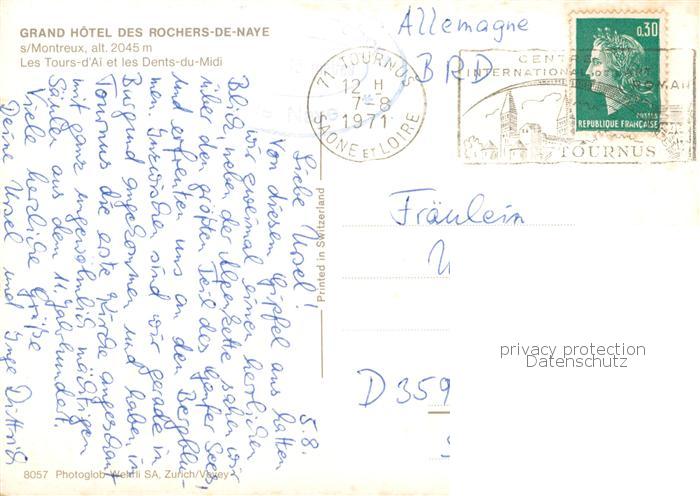 GRAND HÔTEL DES ROCHERS-DE-NAYE
s/Montreux, alt. 2045 m
Les Tours-d'Aï et les Dents-du-Midi
Allemagne
BRD
71 TOURNUS
12 H
7-8
1971
SAONE ET LOIRE
CENTRE
INTERNATIONAL
ROMAN
TOURNUS
0,30
REPUBLIQUE FRANÇAISE
5.8.
Liebe Ursel!
Von diesem Gipfel aus hatten
wir zweimal einen herrlichen
Blick, neben der Alpenkette sahen wir
über den größten Teil des Genfer Sees,
und erfreuten uns an den Bergblu-
men. Inzwischen sind wir gerade in
Burgund angekommen und haben in
Tournus die erste Kirche angeschaut
mit ganz ungewöhnlich mächtigen
Säulen aus dem 11. Jahrhundert.
Viele herzliche Grüße
Deine Ursel und Inge
Printed in Switzerland
Fräulein
U
D 359
privacy protection
Datenschutz
8057 Photoglob-Wehrli SA, Zürich/Vevey